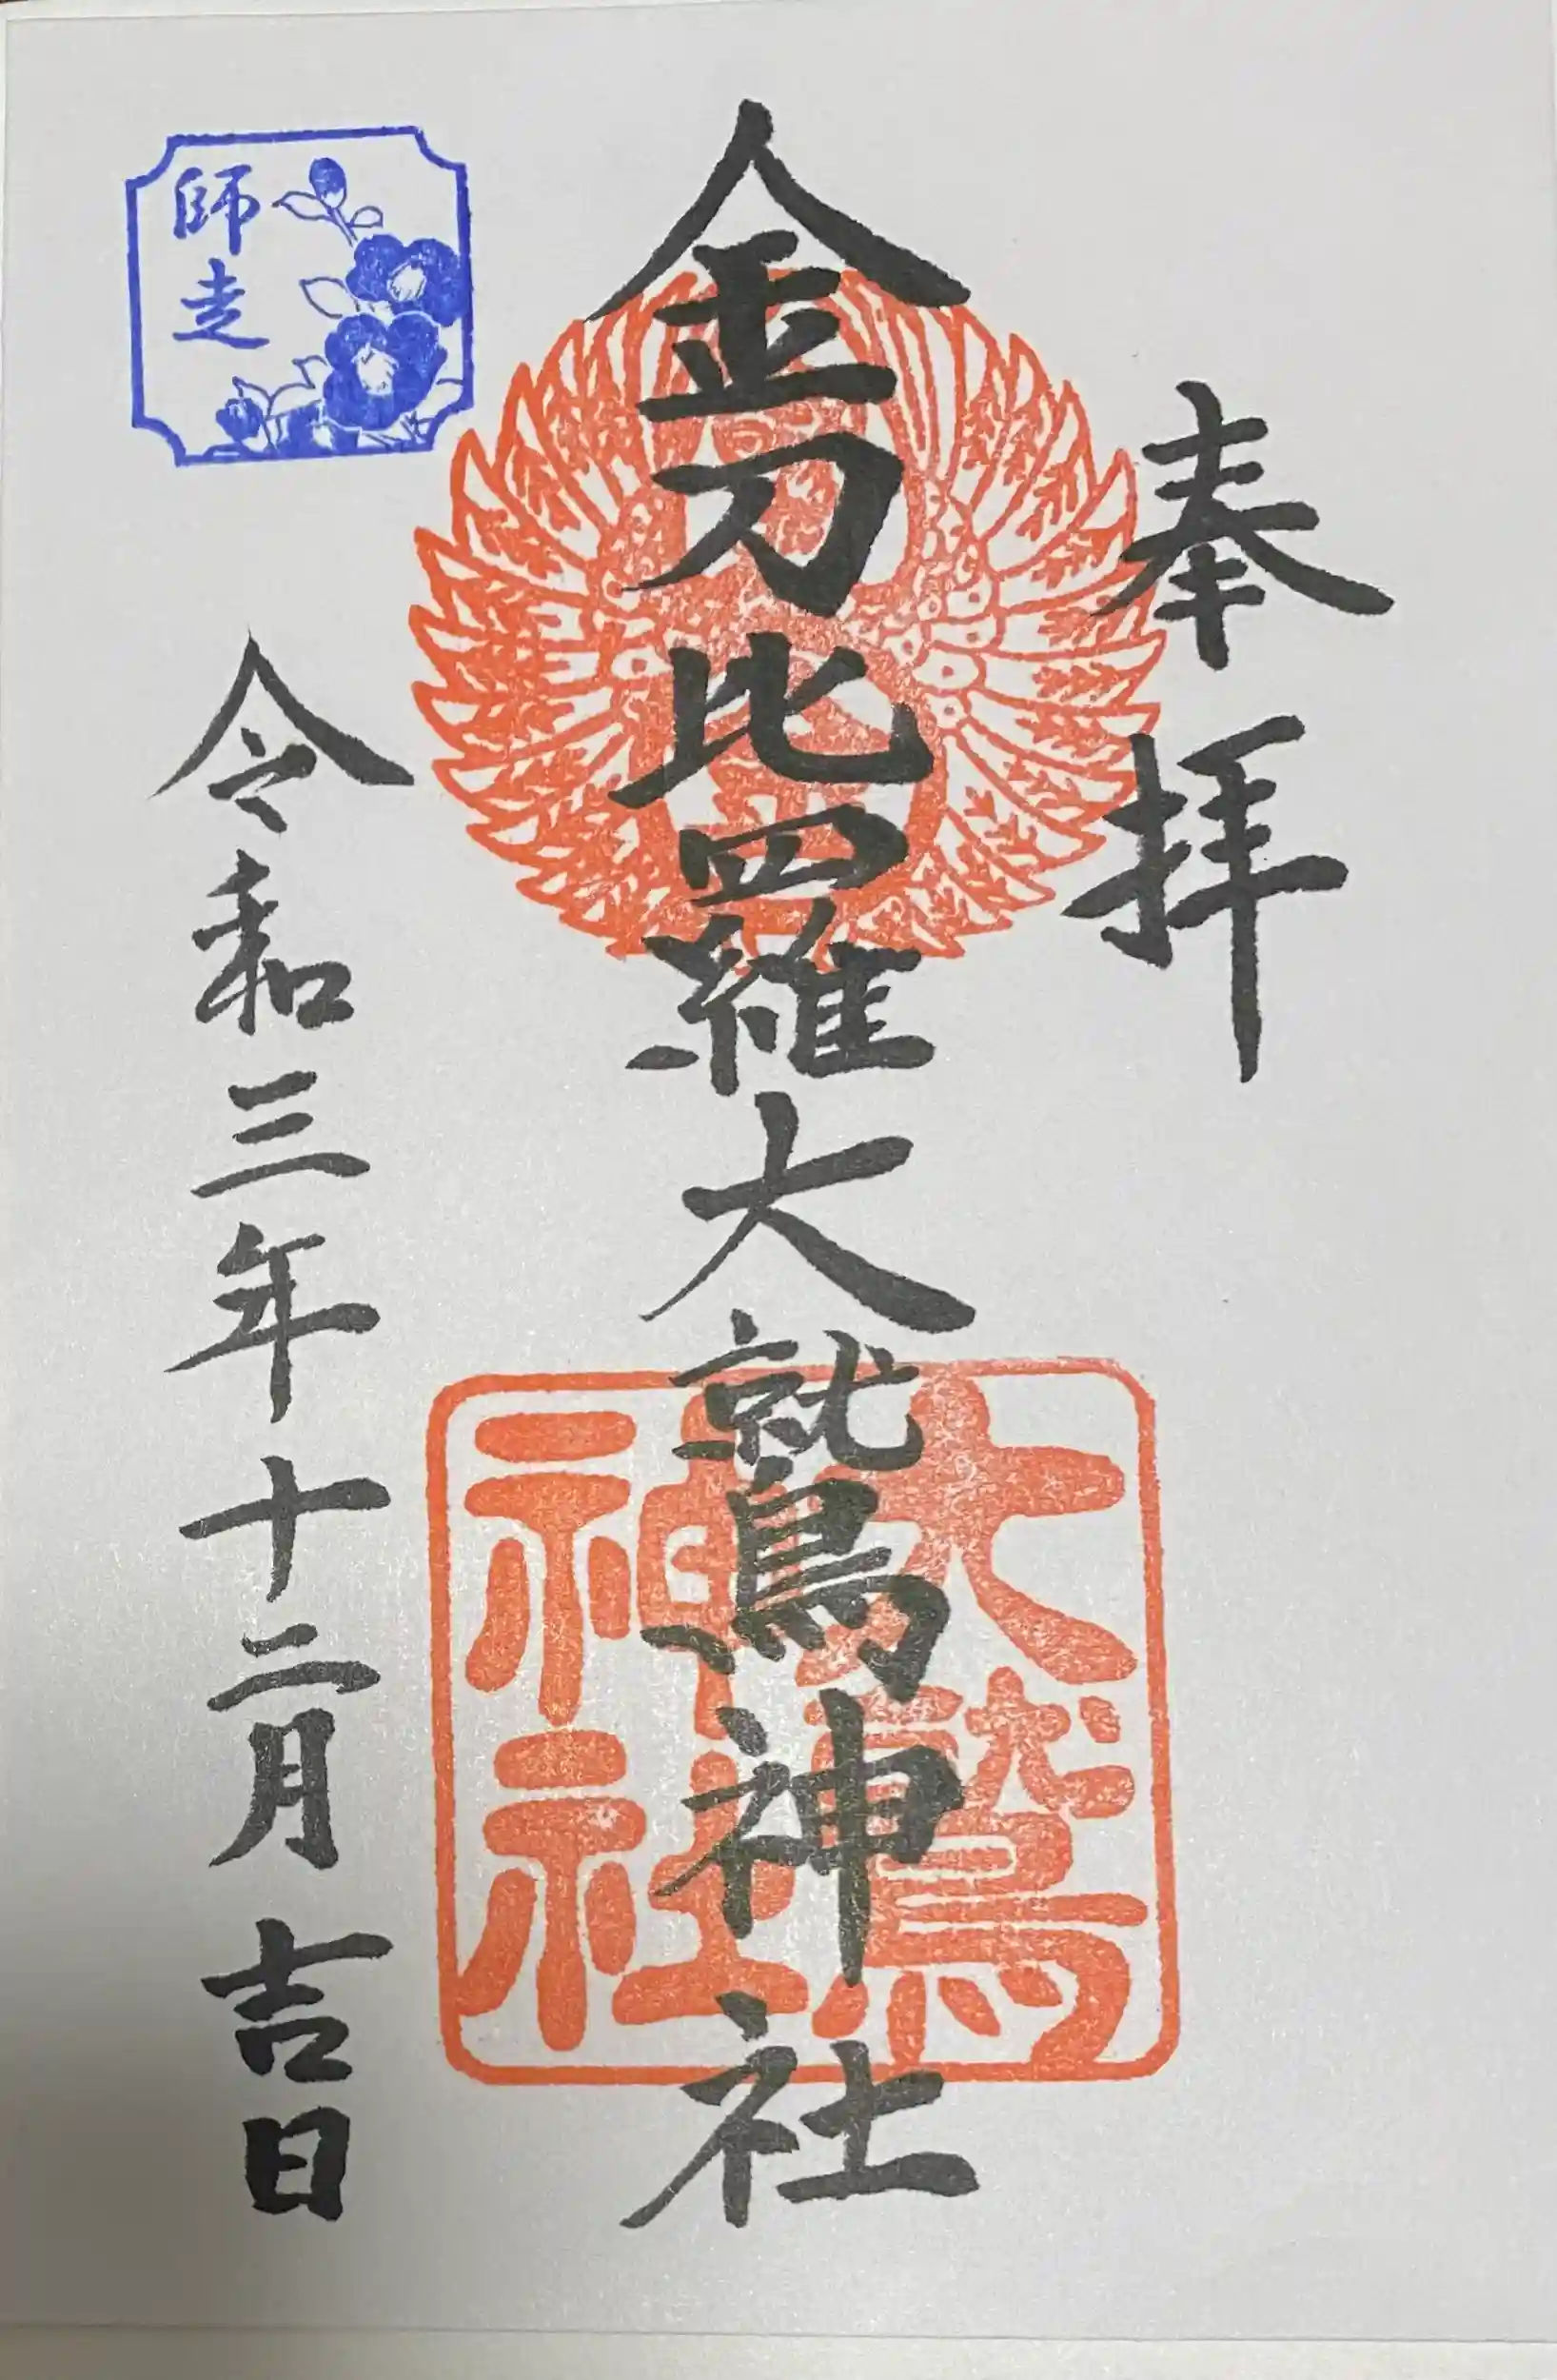 奉拝
金刀比羅大鷲神社
大鷲
神社
師走
令和三年十二月吉日